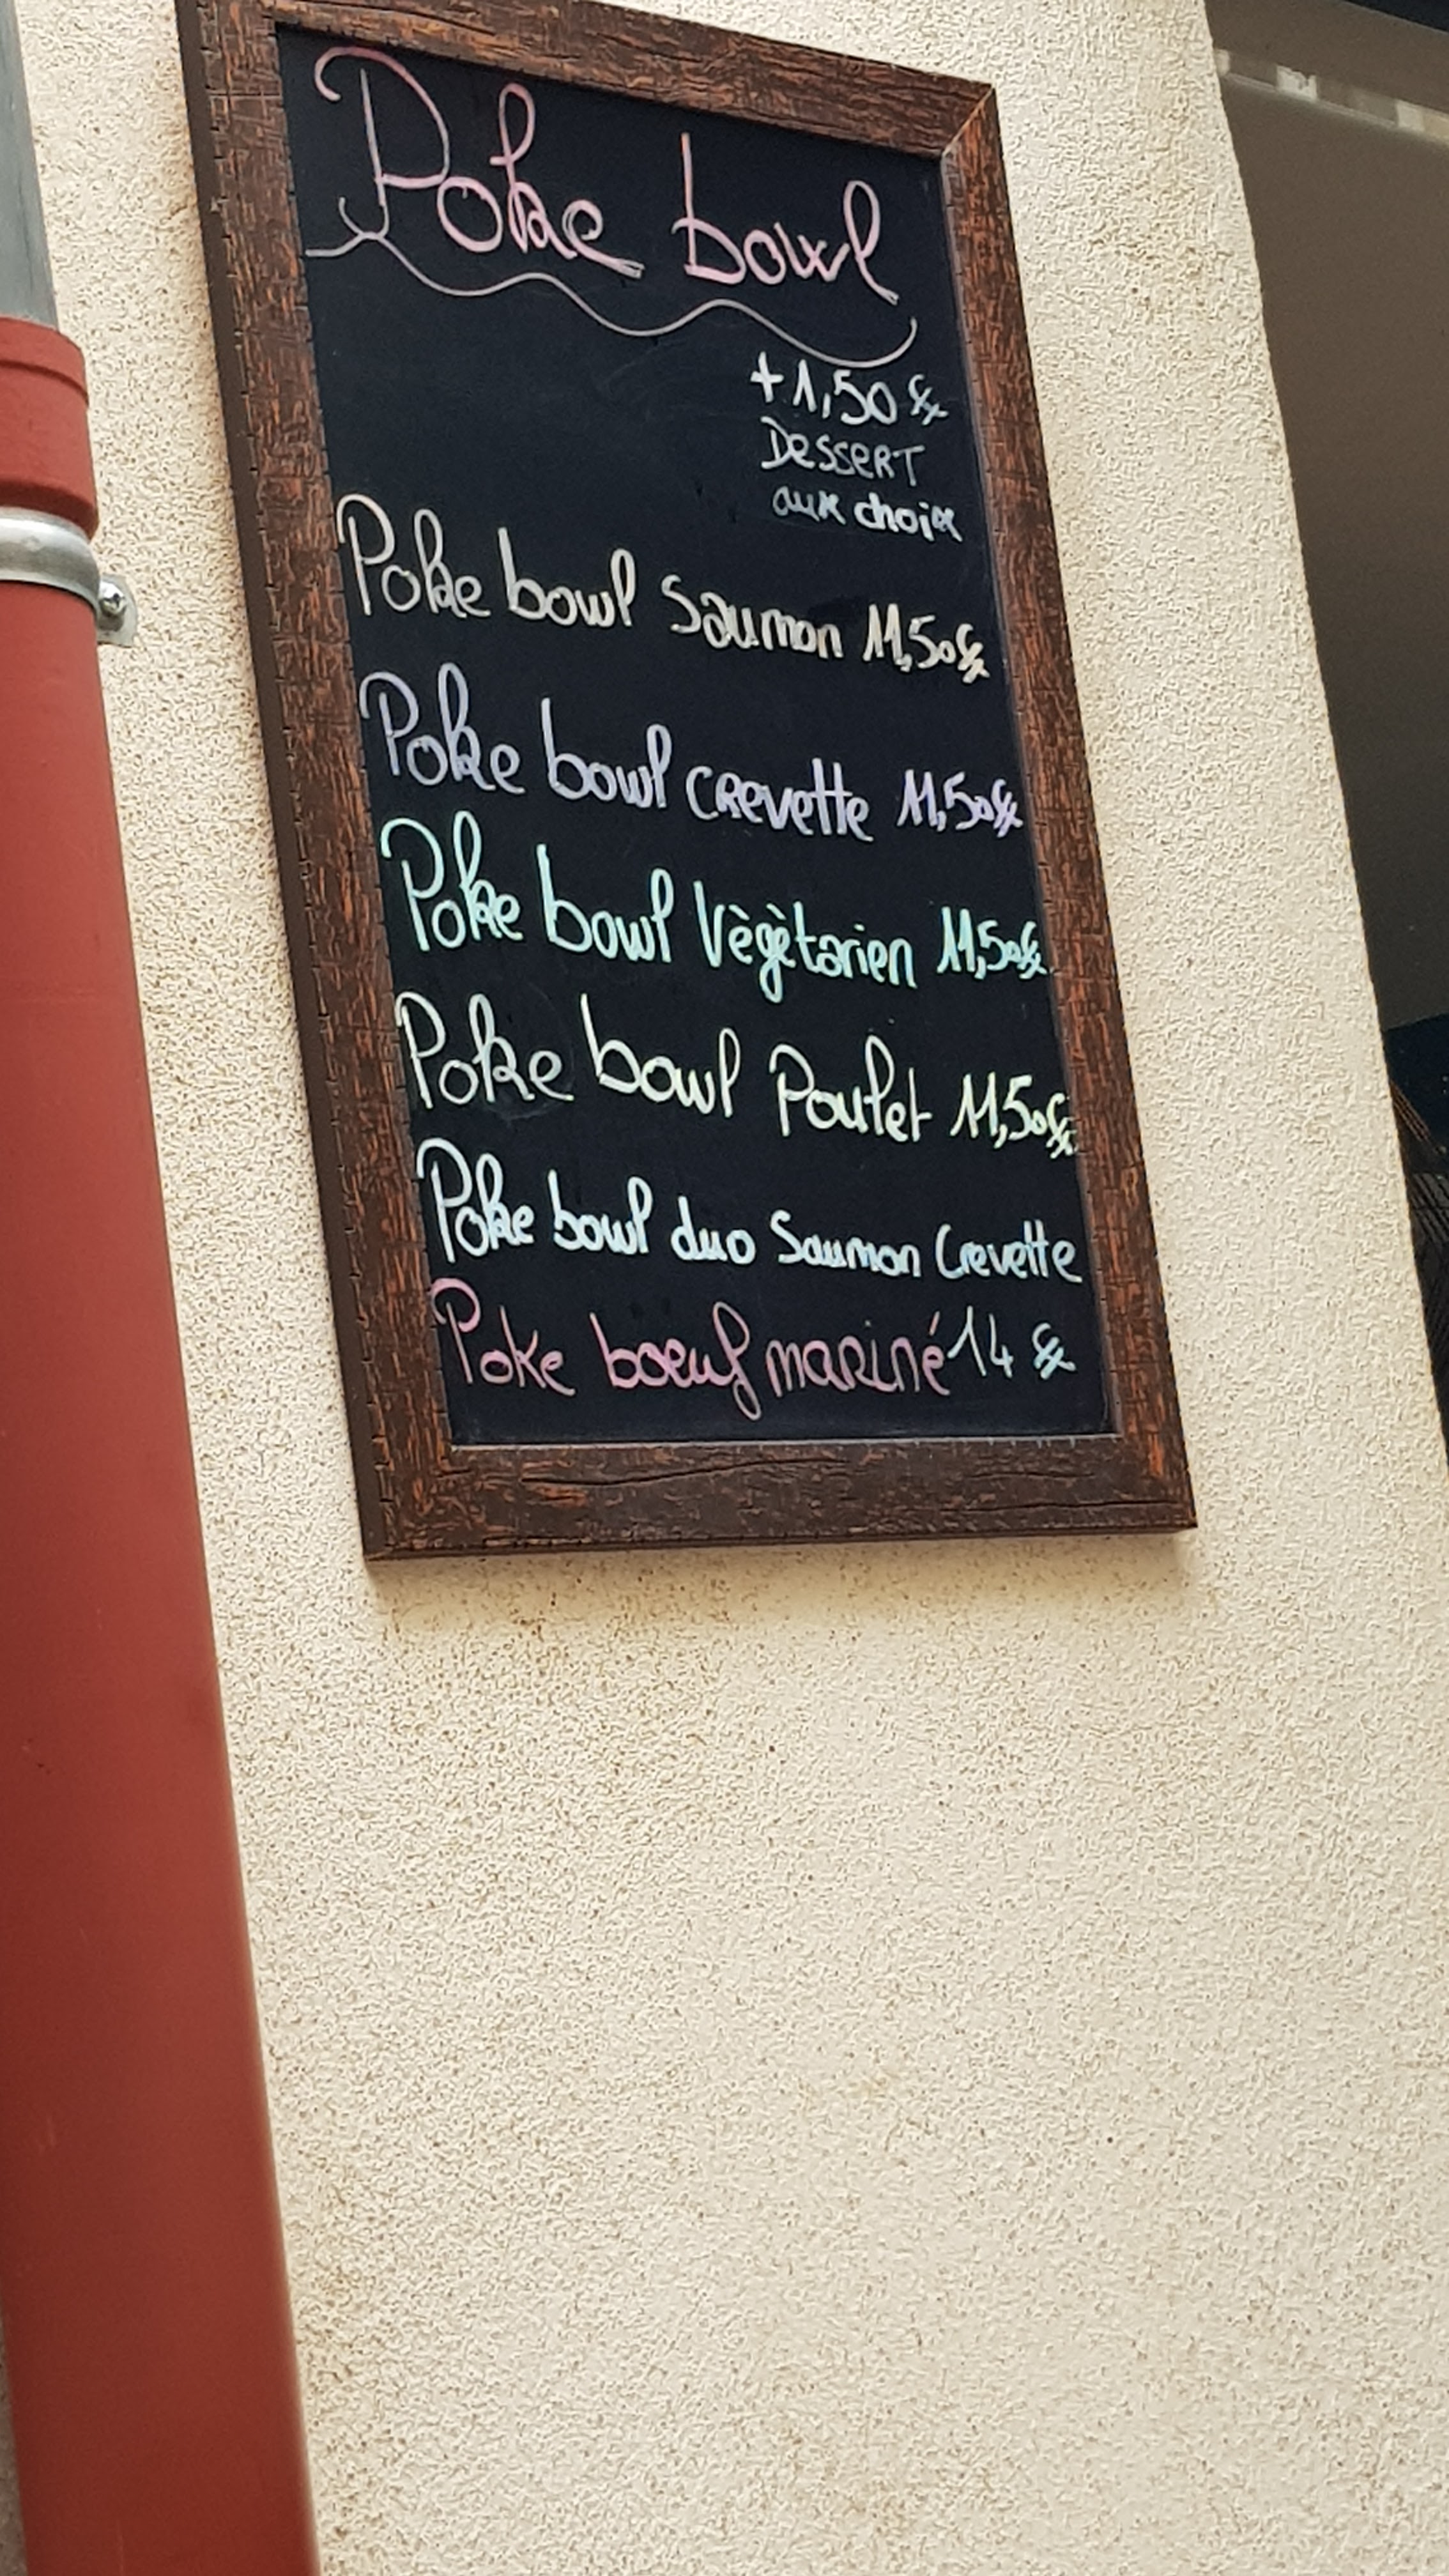 Poke bowl
+1,50€
Dessert
aux choix
Poke bowl Saumon 11,50€
Poke bowl crevette 11,50€
Poke bowl Vègètarien 11,50€
Poke bowl Poulet 11,50€
Poke bowl duo Saumon Crevette
Poke boeuf mariné 14€